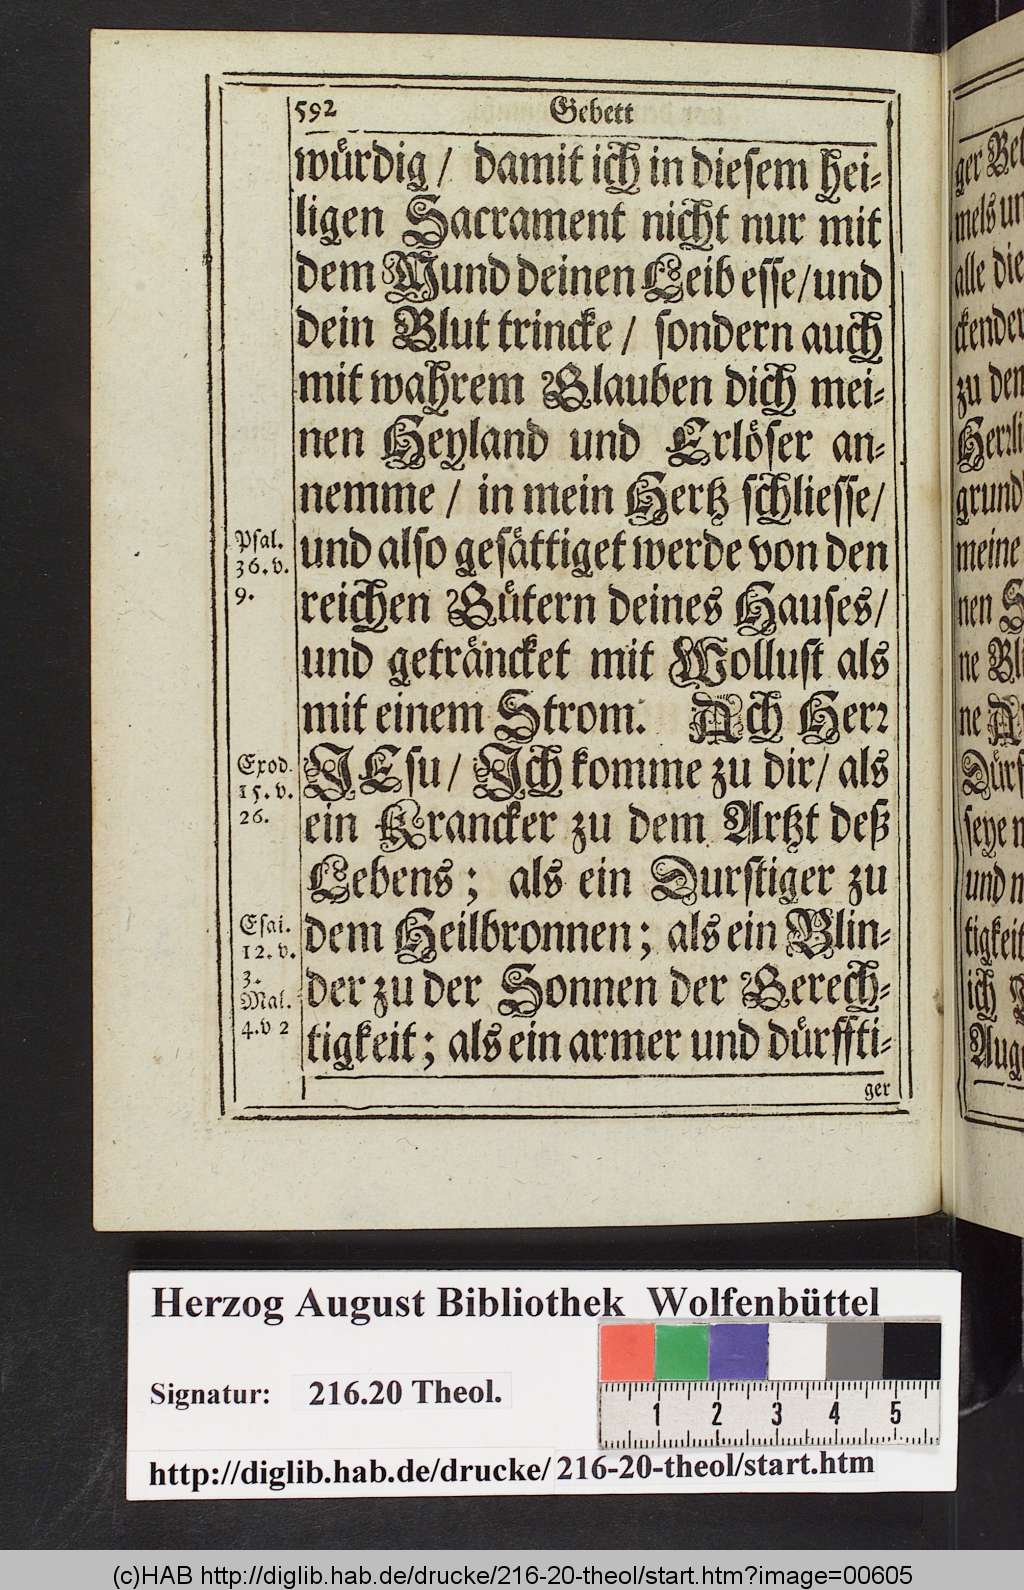 592 Gebett
würdig / damit ich in diesem hei-
ligen Sacrament nicht nur mit
dem Mund deinen Leib esse/ und
dein Blut trincke / sondern auch
mit wahrem Glauben dich mei-
nen Heyland und Erlöser an-
nemme / in mein Hertz schliesse/
Psal.
36. v.
9.
und also gesättiget werde von den
reichen Gütern deines Hauses/
und geträncket mit Wollust als
mit einem Strom. Ach Herr
Exod.
15. v.
26.
JEsu / Ich komme zu dir/ als
ein Krancker zu dem Artzt deß
Lebens; als ein Durstiger zu
Esai.
12. v.
3.
Mal.
4. v 2
dem Heilbronnen; als ein Blin-
der zu der Sonnen der Gerech-
tigkeit; als ein armer und dürffti-
ger
ger
mels
alle die
ckender
zu den
grund
meine
nen
ne
ne
Dürf
seye
und
tigkeit
ich
Aug
Herzog August Bibliothek Wolfenbüttel
Signatur: 216.20 Theol.
1 2 3 4 5
http://diglib.hab.de/drucke/216-20-theol/start.htm
(c)HAB http://diglib.hab.de/drucke/216-20-theol/start.htm?image=00605